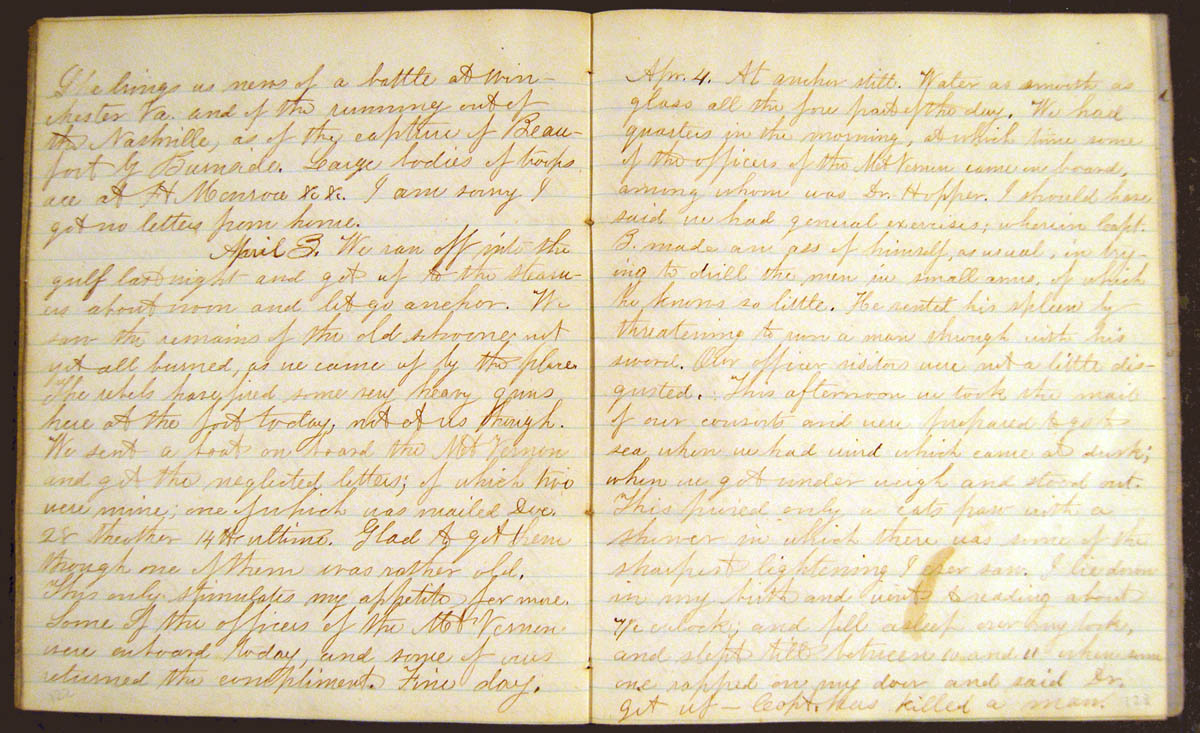 She brings us news of a battle at Win-
chester Va. and of the running out of
the Nashville, as of the capture of Beau-
fort by Burnside. Large bodies of troops
are at Ft Monroe &c &c. I am sorry I
got no letters from home.
April 3. We ran off into the
gulf last night and got up to the steam-
ers about noon and let go anchor. We
saw the remains of the old schooner not
yet all burned, as we came up by the place.
The rebels have fired some very heavy guns
here at the fort today, not at us though.
We sent a boat on board the Mt Vernon
and got the neglected letters; of which two
were mine; one of which was mailed Dec.
28 the other 14th ultimo. Glad to get them
though one of them was rather old.
This only stimulates my appetite for more.
Some of the officers of the Mt Vernon
were onboard today, and some of ours
returned the compliment. Fine day.
Apr. 4. At anchor still. Water as smooth as
glass all the fore part of the day. We had
quarters in the morning, at which time some
of the officers of the Mt Vernon came on board,
among whom was Dr. Hopper. I should have
said we had general exercises; wherein Capt.
B. made an ass of himself, as usual, in try-
ing to drill the men in small arms, of which
he knows so little. He vented his spleen by
threatening to run a man through with his
sword. Our officer visitors were not a little dis-
gusted. This afternoon we took the mail
of our consorts and were prepared to go to
sea when we had wind which came at dusk;
when we got under weigh and stood out.
This proved only a cats paw with a
shower in which there was some of the
sharpest lightening I ever saw. I lie down
in my birth and went to reading about
o'clock; and fell asleep over my book,
and slept till between 10 and 11 when some
one rapped on my door and said Dr.
get up — Capt. has killed a man.
122